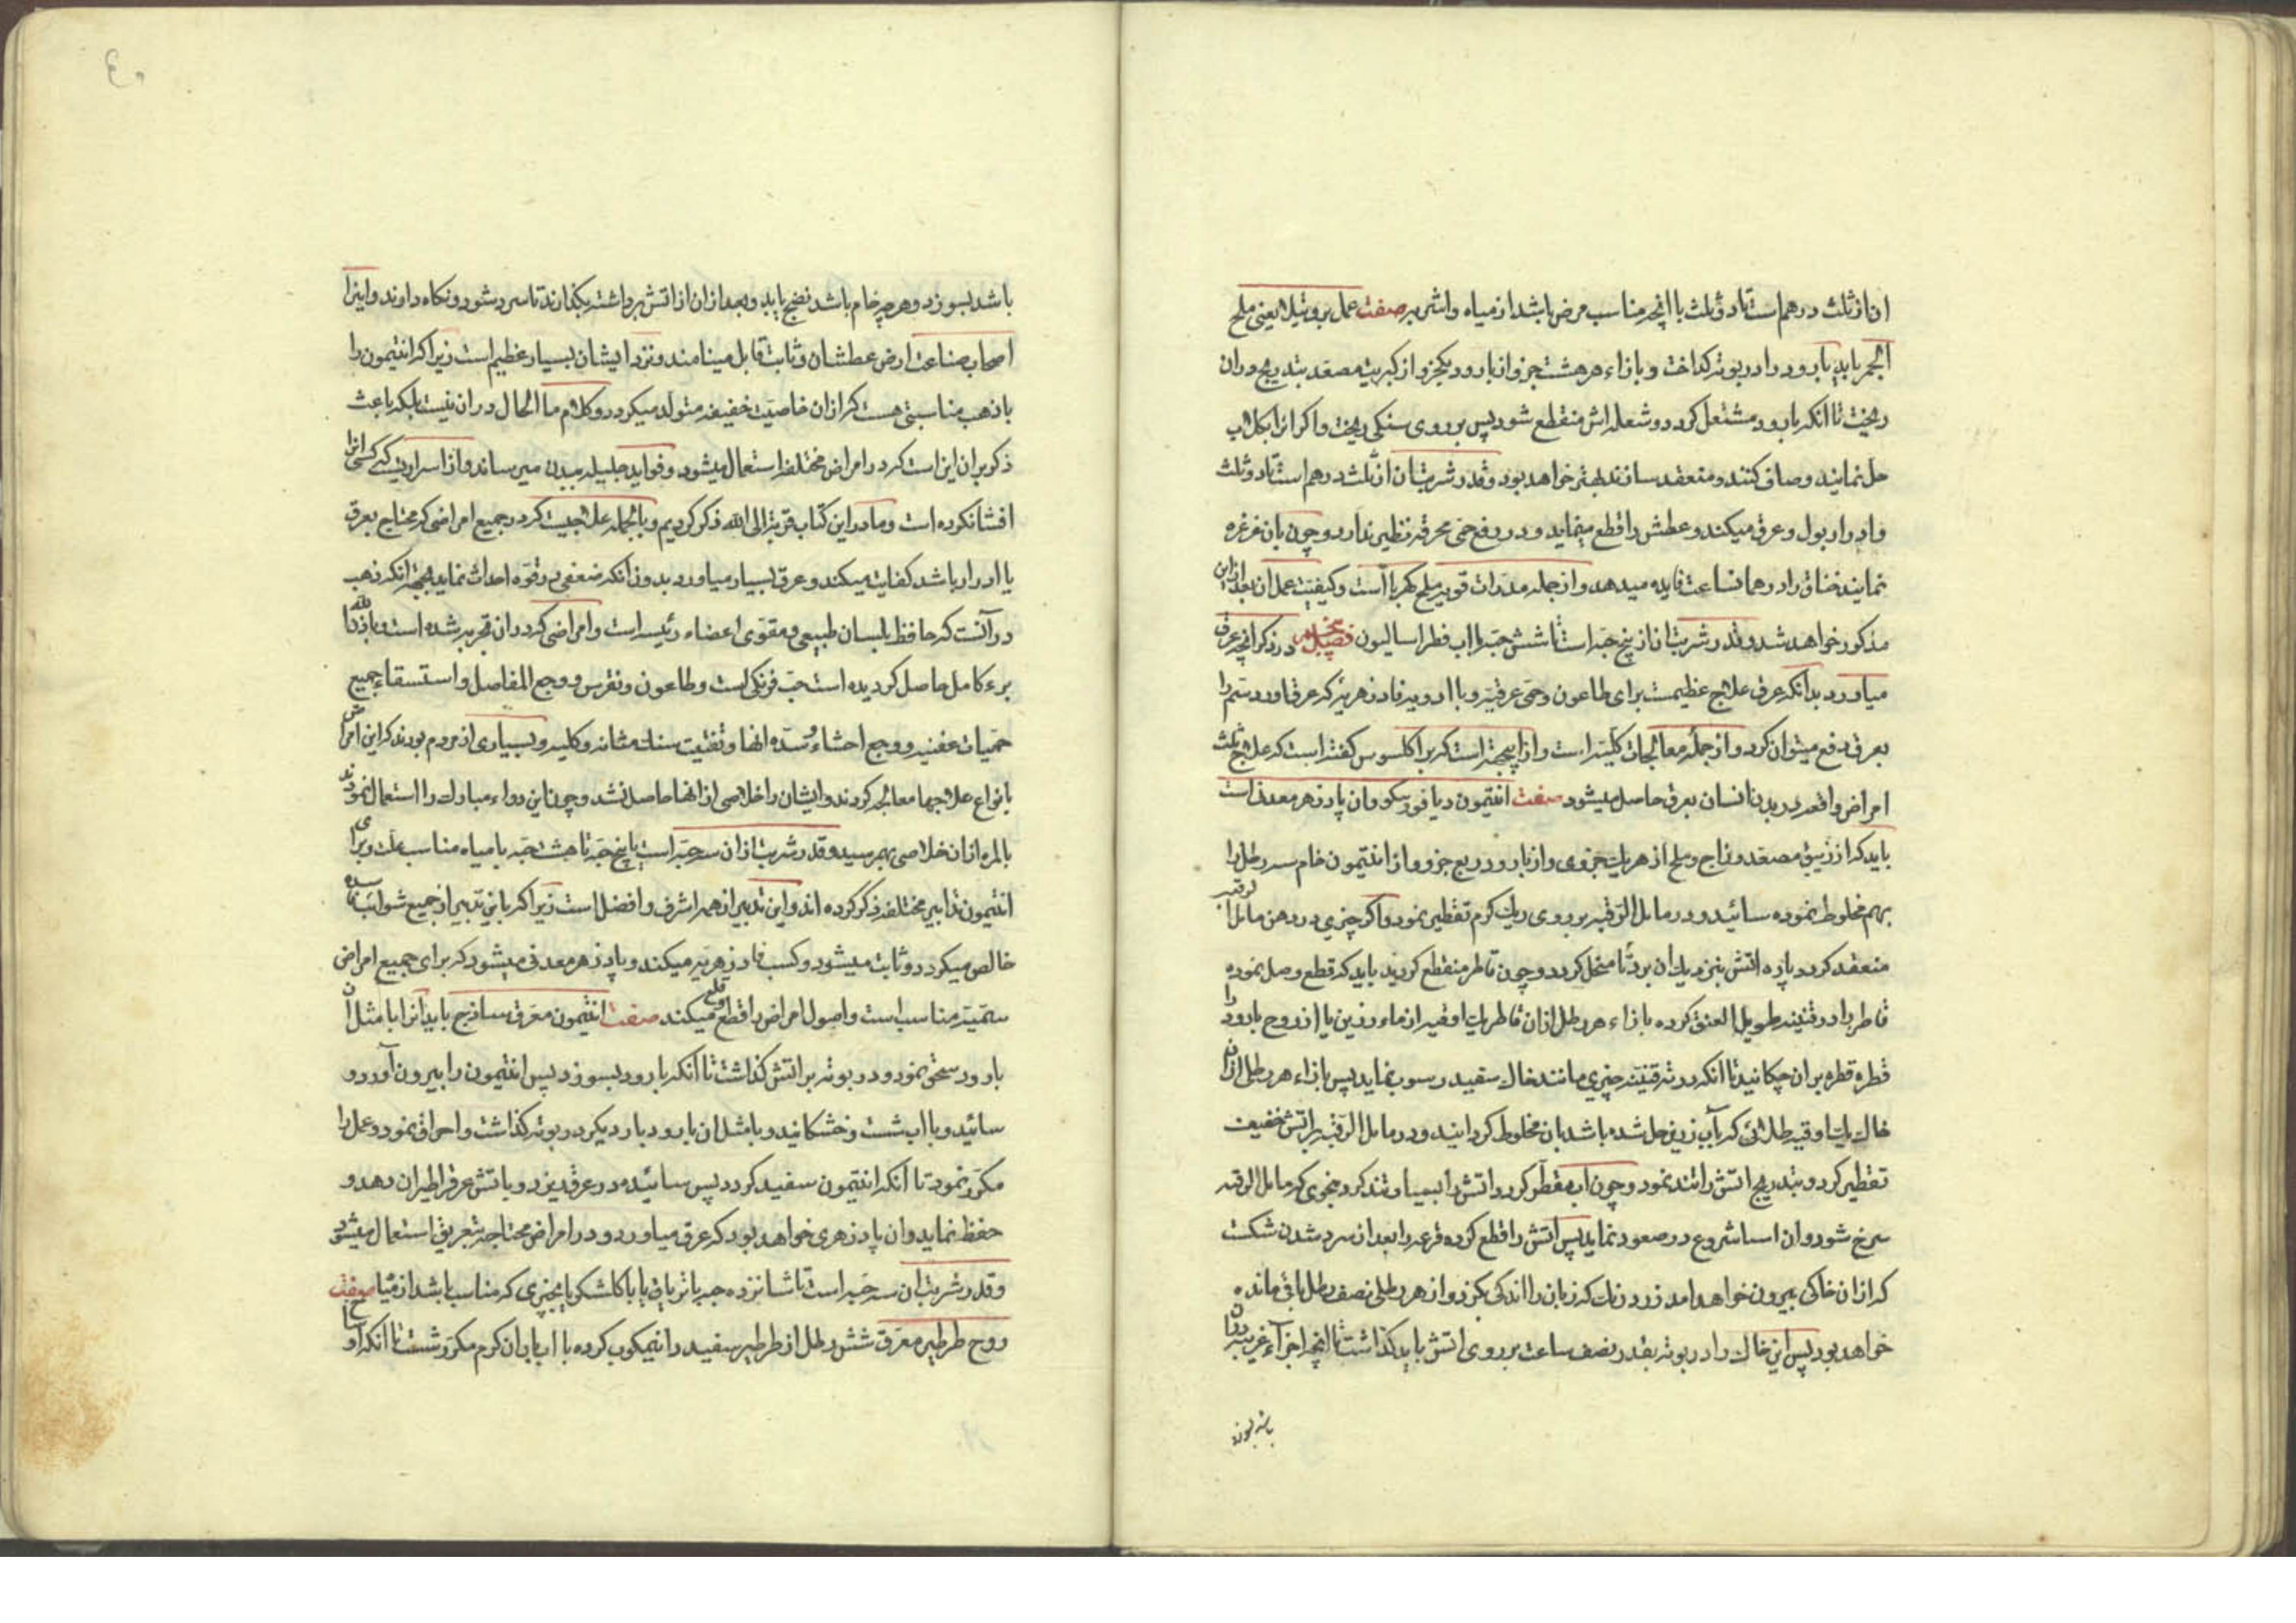 ان از ثلث درهم است تا دو ثلث با انچه مناسب مرض باشد از مياه و اشربه صفت عمل بروتيلا يعنی ملح
الحجر بايد بارود را در بوته کداخت و بازاء هر هشت جزو از بارود يکجزو از کبريت مصعد بتدريج در ان
ريخت تا انکه بارود مشتعل کردد و شعله اش منقطع شود پس بر روی سنکی ريخت و اکر انرا بکلاب
حل نمايند و صاف کنند و منعقد سازند بهتر خواهد بود و قدر شربت ان از ثلث درهم است تا دو ثلث
و ادرار بول و عرق ميکند و عطش را قطع مينمايد و در دفع حمی محرقه نظير ندارد و چون بان غرغره
نمايند خناق را در همان ساعت فايده ميدهد و از جمله مدرات قويه ملح کهرباست و کيفيت عمل ان بعد ازين
مذکور خواهد شد و قدر شربت ان از پنج حبه است تا ششش حبه با اب فطراساليون فصل در ذکر انچه عرق
مياورد بدانکه عرق علاج عظيمست برای طاعون و حمی عرقيه و با ادويه فادزهريه که عرق اورد سم را
بعرق دفع ميتوان کرد و از جمله معالجات کليه است و ازينجهة است که براکلسوس کفته است که علاج ثلث
امراض واقعه در بدن انسان بعرق حاصل ميشود صفت انتيمون ديافورسکو و ان پادزهر معدنی است
بايد که از زيبق مصعد و زاج و ملح از هر يک جزوی و از بارود ربع جزو و از انتيمون خام سه رطل را
بهم مخلوط نموده سائيد و در مايل الرقبه بر روی ريک کرم تقطير نمود و اکر چيزی در دهن مايل الرقبه
منعقد کردد پاره اتش بنزديک ان برد تا منحل کردد و چون تقاطر منقطع کرديد بايد که قطع وصل نموده
قاطر را در قنينه طويل العنق کرده بازاء هر رطل از ان قاطر يک اوقيه از ماء رزين يا از روح بارود را
قطره قطره بر ان چکانيد تا انکه در ته قنينه چيزی مانند خاک سفيد رسوب نمايد پس بازاء هر رطل از ان
خاک يک اوقيه طلائی که بآب رزين حل شده باشد بان مخلوط کردانيد و در مايل الرقبه بر اتش خفيف
تقطير کرد و بتدريج اتش را تند نمود و چون اب مقطر کردد اتش را بسيار تند کرد بنحوی که مايل الرقبه
سرخ شود و ان اسا شروع در صعود نمايد پس اتش را قطع کرده قرعه را بعد از سرد شدن شکست
که از ان خاکی بيرون خواهد امد زرد رنک که زبان را اندکی بکزد و از هر رطلی نصف رطل باقی مانده
خواهد بود پس اين خاک را در بوته بقدر نصف ساعت بر روی اتش بايد کذاشت تا انچه اجزآء غريبه در ان
باشد بسوزد
باشد بسوزد و هر چه خام باشد نضج يابد و بعد از ان از اتش برداشته بکذارند تا سرد شود و نکاه دارند و اينرا
اصحاب صناعت ارض عطشان و ثابت قابل مينامند و نزد ايشان بسيار عظيم است زيرا که انتيمون را
با ذهب مناسبتی هست که از ان خاصيت خفيفه متولد ميکردد و کلام ما الحال در ان نيست بلکه باعث
ذکر بر ان اين است که در امراض مختلفه استعمال ميشود و فوايد جليله ببدن ميرساند و از اسراريست که کسی انرا
افشا نکرده است و ما در اين کتاب قربة الی الله ذکر کرديم و بالجمله علاجيست که در جميع امراضی که محتاج بعرق
يا ادرار باشد کفايت ميکند و عرق بسيار مياورد بدون انکه ضعفی در قوه احداث نمايد بجهة انکه ذهب
در آنست که حافظ بلسان طبيعی و مقوی اعضاء رئيسه است و امراضی که در ان تجربه شده است و باذن الله
برء کامل حاصل کرديده است حب فرنکی است و طاعون و نقرس و وجع المفاصل و استسقاء جميع
حميات عفنيه و وجع احشاء و سده انها و تفتيت سنک مثانه و کليه و بسياری از مردم بودند که اين امراض
بانواع علاجها معالجه کردند و ايشان را خلاصی از انها حاصل نشد و چون اين دواء مبارک را استعمال نمودند
بالمره از ان خلاصی بهم رسيد و قدر شربت از ان سه حبه است يا پنج حبه تا هشت حبه با مياه مناسب علت و برای
انتيمون تدابير مختلفه ذکر کرده اند و اين تدبير از همه اشرف و افضل است زيرا که باين تدبير از جميع شوايب
خالص ميکردد و ثابت ميشود و کسب فادزهريه ميکند و پادزهر معدنی ميشود که برای جميع امراض
سميه مناسب است و اصول امراض را قطع و قلع ميکند صفت انتيمون معرق ساذج بايد انرا با مثل ان
بارود سحق نمود و در بوته بر اتش کذاشت تا انکه بارود بسوزد پس انتيمون را بيرون آورد و
سائيد و با اب شست و خشکانيد و با مثل ان بارود بار ديکر در بوته کذاشت و احراق نمود و عمل را
مکرر نمود تا انکه انتيمون سفيد کردد پس سائيده در عرق ريزد و باتش عرق را طيران دهد و
حفظ نمايد و ان پادزهری خواهد بود که عرق مياورد و در امراض محتاجه بتعريق استعمال ميشود
و قدر شربت ان سه حبه است تا شانزده حبه با ترياق يا با کاشکر يا بچيزی که مناسب باشد از مياه صفت
روح طرطير معرق ششش رطل از طرطير سفيد را نيمکوب کرده با اب باران کرم مکرر شست تا انکه